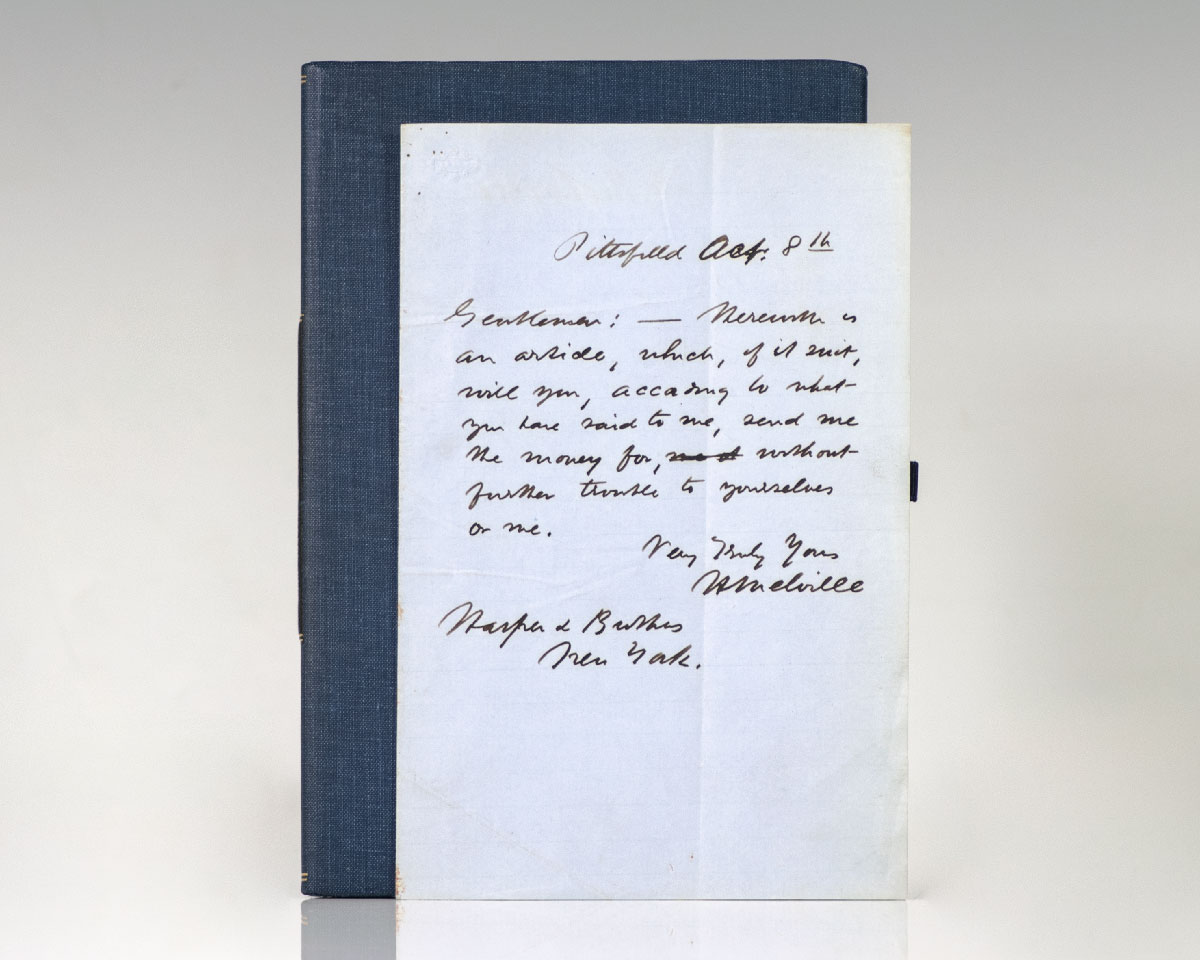 Pittsfield Oct. 8th
Gentlemen: — Herewith is
an article, which, if it suit,
will you, according to what
you have said to me, send me
the money for, without
further trouble to yourselves
or me.
Very Truly Yours
H Melville
Harper & Brothers
New York.